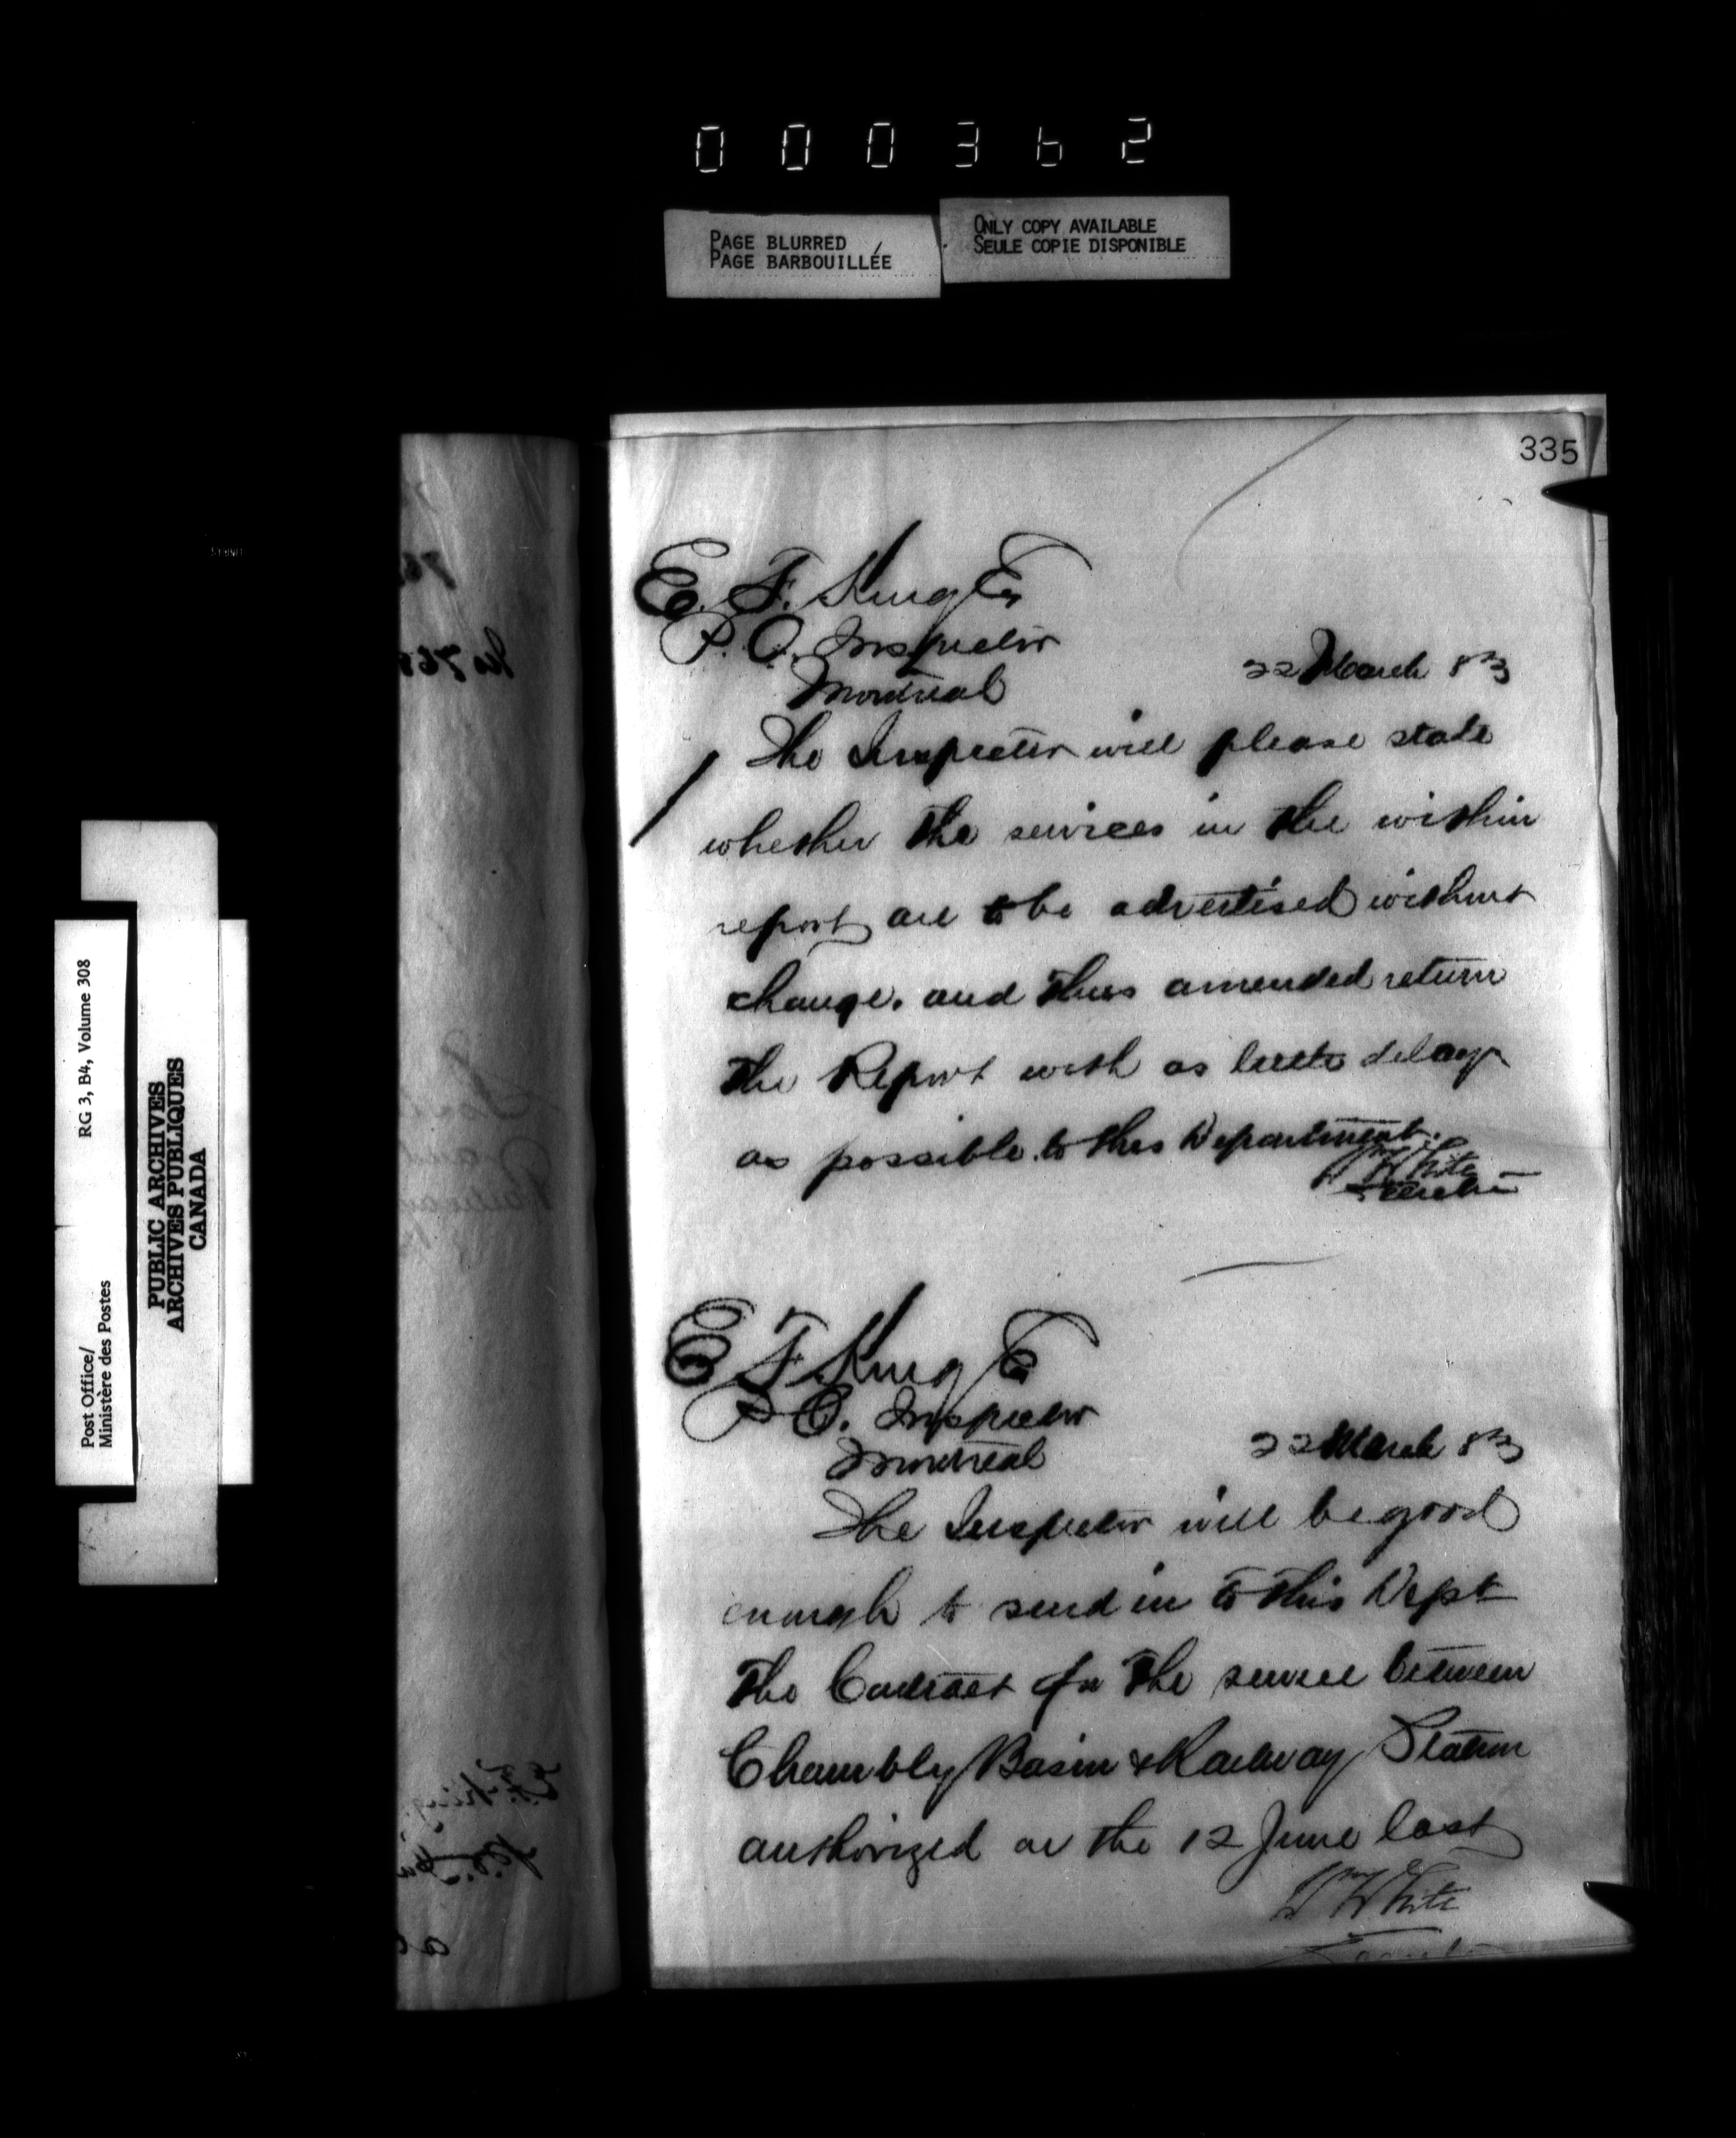 000362
PAGE BLURRED
PAGE BARBOUILLÉE
ONLY COPY AVAILABLE
SEULE COPIE DISPONIBLE
335
E. F. King Esq
P. O. Inspector
Montreal
22 March 83
The Inspector will please state
whether the services in the within
report are to be advertised without
change. and thus amended return
the Report with as little delay
as possible to this Department.
Wm White
Secretary
E F King E
P O. Inspector
Montreal
22 March 83
The Inspector will be good
enough to send in to this Dept
the Contract for the service between
Chambly Basin & Railway Station
authorized on the 12 June last
Wm White
Post Office/
Ministère des Postes
RG 3, B4, Volume 308
PUBLIC ARCHIVES
ARCHIVES PUBLIQUES
CANADA